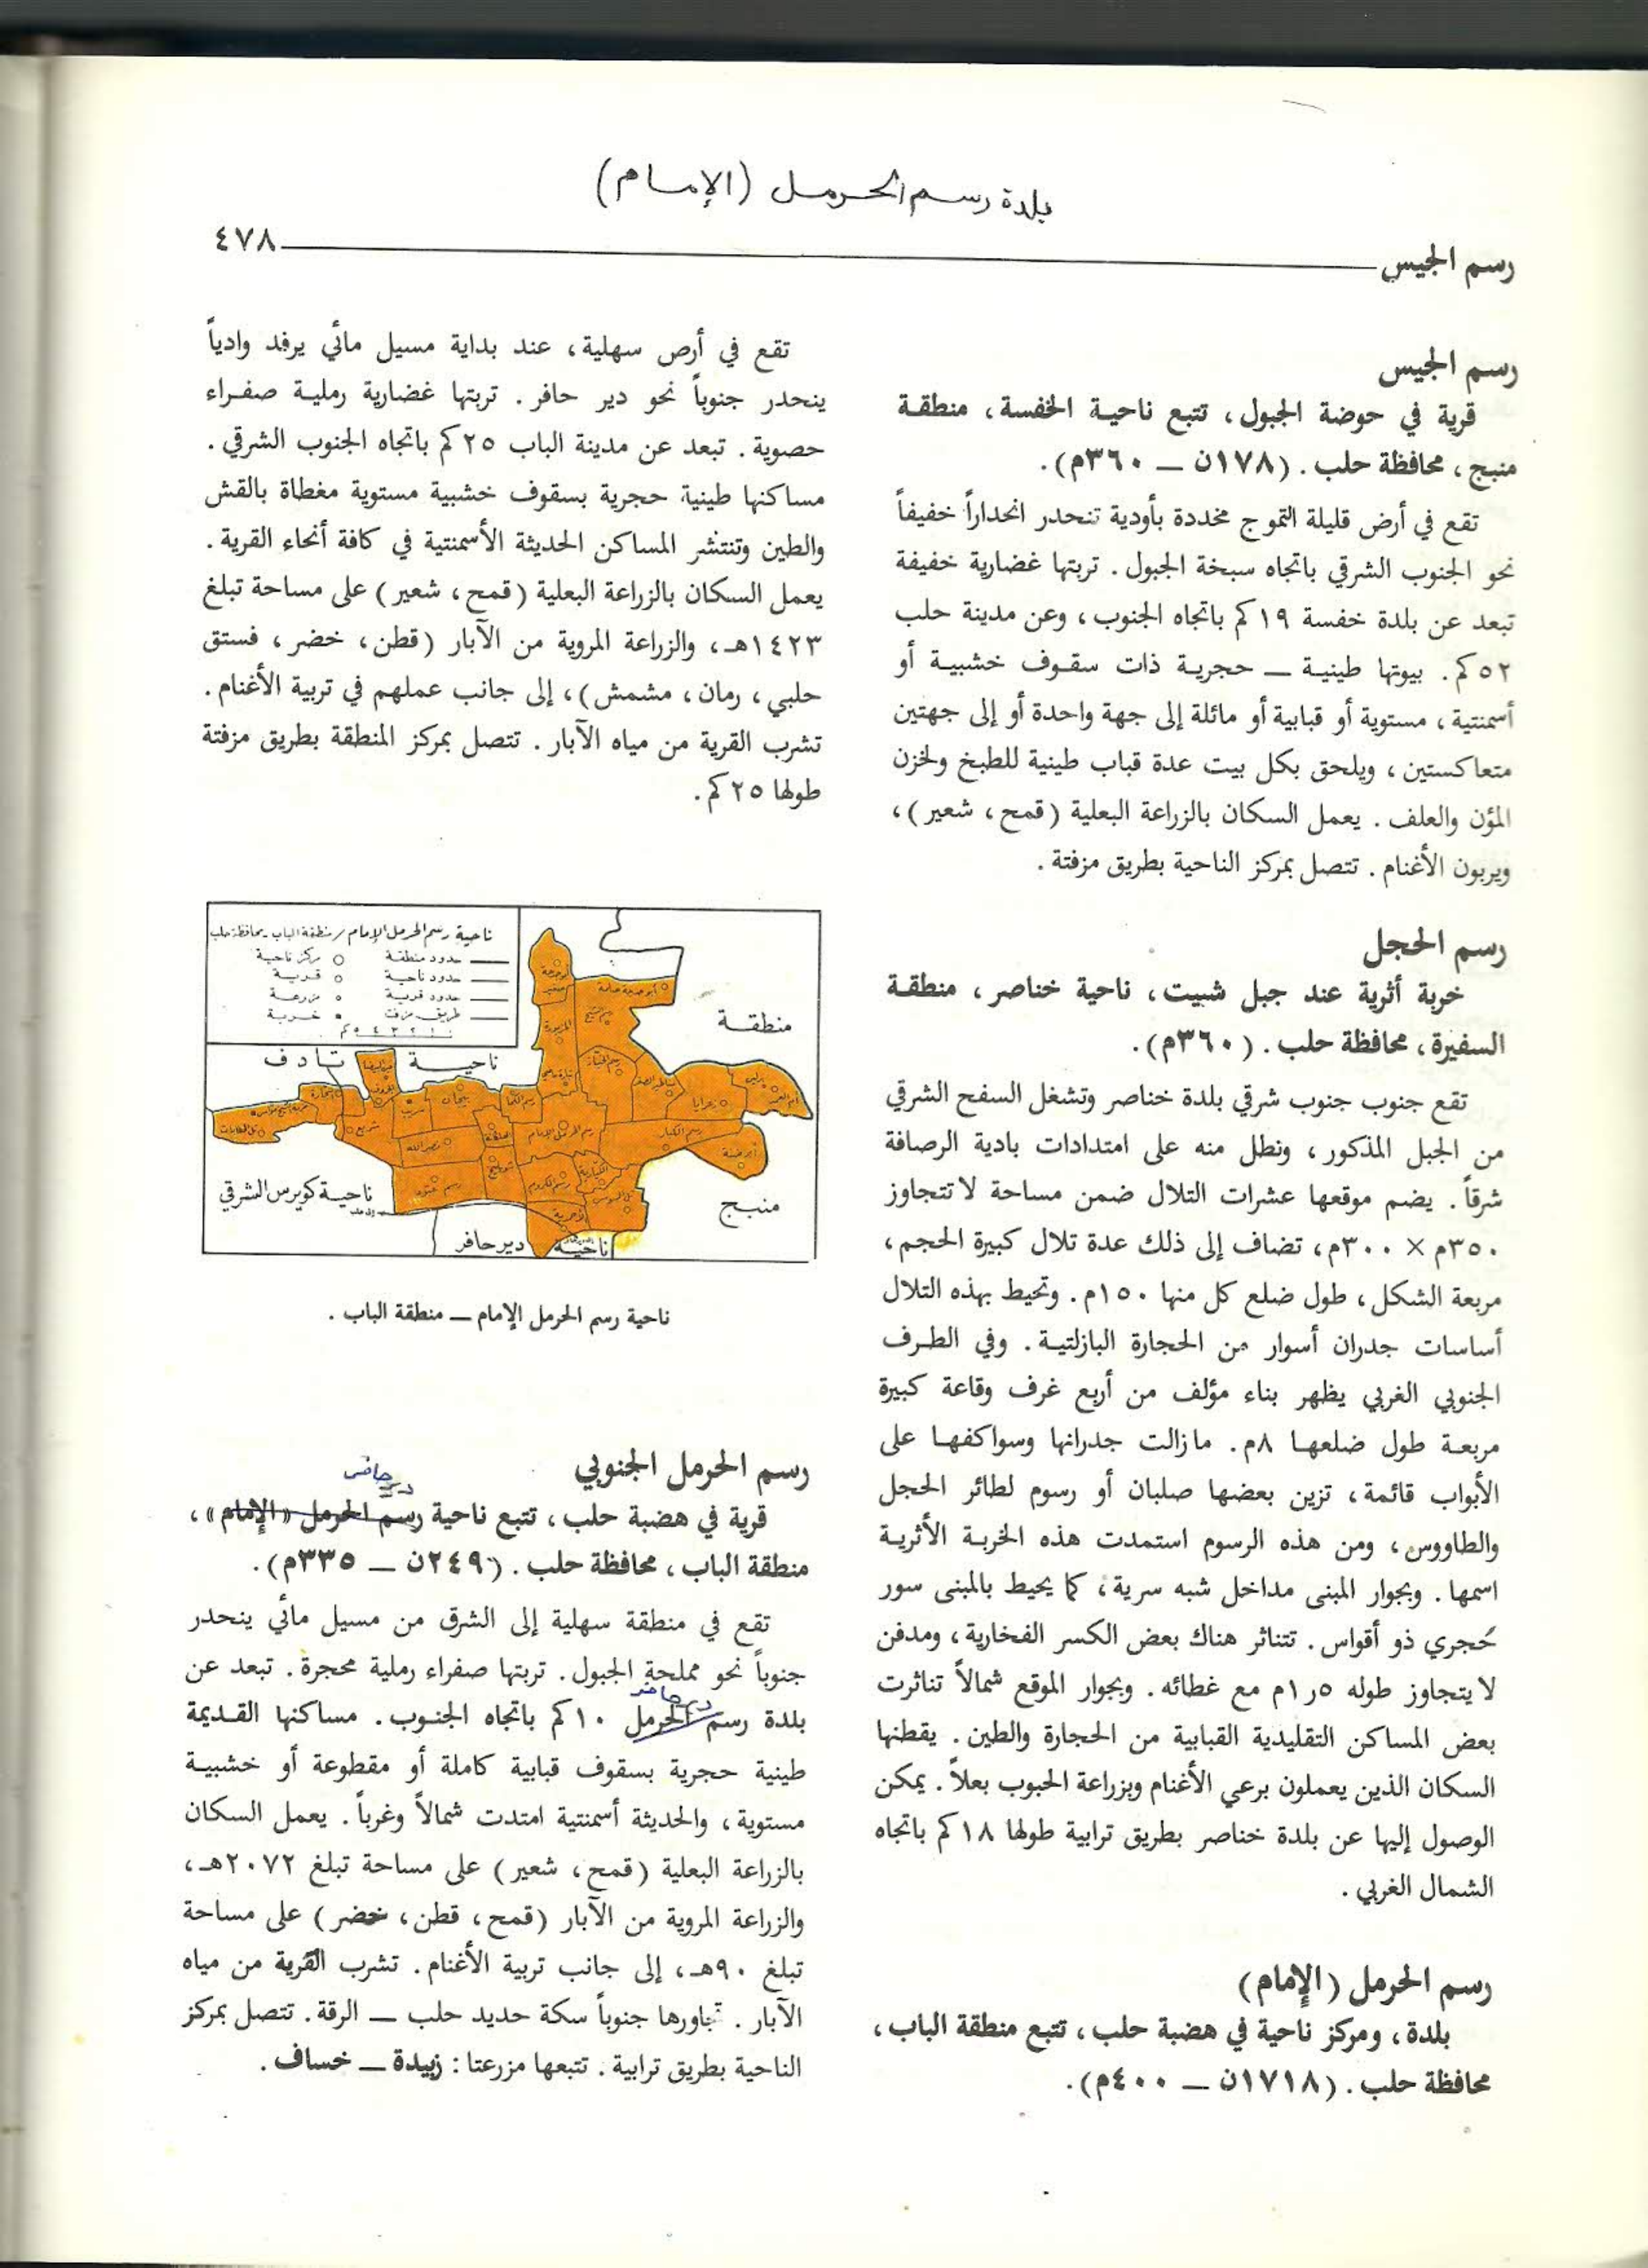 بلدة رسم الحرمل (الإمام)
رسم الجيس
٤٧٨
رسم الجيس
قرية في حوضة الجبول، تتبع ناحية الخفسة، منطقة
منبج، محافظة حلب. (١٧٨ن ــ ٣٦٠م).
تقع في أرض قليلة التموج مخددة بأودية تنحدر انحداراً خفيفاً
نحو الجنوب الشرقي باتجاه سبخة الجبول. تربتها غضارية خفيفة
تبعد عن بلدة خفسة ١٩كم باتجاه الجنوب، وعن مدينة حلب
٥٢كم. بيوتها طينية ــ حجرية ذات سقوف خشبية أو
أسمنتية، مستوية أو قبابية أو مائلة إلى جهة واحدة أو إلى جهتين
متعاكستين، ويلحق بكل بيت عدة قباب طينية للطبخ ولخزن
المؤن والعلف. يعمل السكان بالزراعة البعلية (قمح، شعير)،
ويربون الأغنام. تتصل بمركز الناحية بطريق مزفتة.
رسم الحجل
خربة أثرية عند جبل شبيت، ناحية خناصر، منطقة
السفيرة، محافظة حلب. (٣٦٠م).
تقع جنوب جنوب شرقي بلدة خناصر وتشغل السفح الشرقي
من الجبل المذكور، ونطل منه على امتدادات بادية الرصافة
شرقاً. يضم موقعها عشرات التلال ضمن مساحة لا تتجاوز
٣٥٠م × ٣٠٠م، تضاف إلى ذلك عدة تلال كبيرة الحجم،
مربعة الشكل، طول ضلع كل منها ١٥٠م. وتحيط بهذه التلال
أساسات جدران أسوار من الحجارة البازلتية. وفي الطرف
الجنوبي الغربي يظهر بناء مؤلف من أربع غرف وقاعة كبيرة
مربعة طول ضلعها ٨م. مازالت جدرانها وسواكفها على
الأبواب قائمة، تزين بعضها صلبان أو رسوم لطائر الحجل
والطاووس، ومن هذه الرسوم استمدت هذه الخربة الأثرية
اسمها. وبجوار المبنى مداخل شبه سرية، كما يحيط بالمبنى سور
حجري ذو أقواس. تتناثر هناك بعض الكسر الفخارية، ومدفن
لا يتجاوز طوله ١٫٥م مع غطائه. وبجوار الموقع شمالاً تناثرت
بعض المساكن التقليدية القبابية من الحجارة والطين. يقطنها
السكان الذين يعملون برعي الأغنام وبزراعة الحبوب بعلاً. يمكن
الوصول إليها عن بلدة خناصر بطريق ترابية طولها ١٨كم باتجاه
الشمال الغربي.
رسم الحرمل (الإمام)
بلدة، ومركز ناحية في هضبة حلب، تتبع منطقة الباب،
محافظة حلب. (١٧١٨ن ــ ٤٠٠م).
تقع في أرص سهلية، عند بداية مسيل مائي يرفد وادياً
ينحدر جنوباً نحو دير حافر. تربتها غضارية رملية صفراء
حصوية. تبعد عن مدينة الباب ٢٥كم باتجاه الجنوب الشرقي.
مساكنها طينية حجرية بسقوف خشبية مستوية مغطاة بالقش
والطين وتنتشر المساكن الحديثة الأسمنتية في كافة أنحاء القرية.
يعمل السكان بالزراعة البعلية (قمح، شعير) على مساحة تبلغ
١٤٢٣هـ، والزراعة المروية من الآبار (قطن، خضر، فستق
حلبي، رمان، مشمش)، إلى جانب عملهم في تربية الأغنام.
تشرب القرية من مياه الآبار. تتصل بمركز المنطقة بطريق مزفتة
طولها ٢٥كم.
ناحية رسم الحرمل الإمام / منطقة الباب ـ محافظة حلب
حدود منطقة
مركز ناحية
حدود ناحية
قرية
حدود قرية
مزرعة
طريق مزفت
خربة
منطقة
ناحية
تادف
منبج
ناحية كويرس الشرقي
ناحية
دير حافر
ناحية رسم الحرمل الإمام ــ منطقة الباب.
رسم الحرمل الجنوبي
دير حافر
قرية في هضبة حلب، تتبع ناحية رسم الحرمل «الإمام»،
منطقة الباب، محافظة حلب. (٢٤٩ن ــ ٣٣٥م).
تقع في منطقة سهلية إلى الشرق من مسيل مائي ينحدر
جنوباً نحو مملحة الجبول. تربتها صفراء رملية محجرة. تبعد عن
دير حافر
بلدة رسم الحرمل ١٠كم باتجاه الجنوب. مساكنها القديمة
طينية حجرية بسقوف قبابية كاملة أو مقطوعة أو خشبية
مستوية، والحديثة أسمنتية امتدت شمالاً وغرباً. يعمل السكان
بالزراعة البعلية (قمح، شعير) على مساحة تبلغ ٢٠٧٢هـ،
والزراعة المروية من الآبار (قمح، قطن، خضر) على مساحة
تبلغ ٩٠هـ، إلى جانب تربية الأغنام. تشرب القرية من مياه
الآبار. تجاورها جنوباً سكة حديد حلب ــ الرقة. تتصل بمركز
الناحية بطريق ترابية. تتبعها مزرعتا: زبيدة ــ خساف.